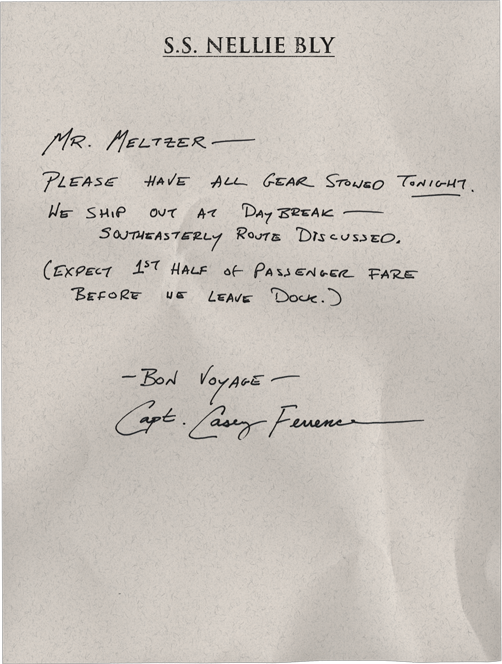 S.S. NELLIE BLY
MR. MELTZER—
PLEASE HAVE ALL GEAR STOWED TONIGHT.
WE SHIP OUT AT DAYBREAK—
SOUTHEASTERLY ROUTE DISCUSSED.
(EXPECT 1ST HALF OF PASSENGER FARE
BEFORE WE LEAVE DOCK.)
—BON VOYAGE—
Capt. Casey Ference